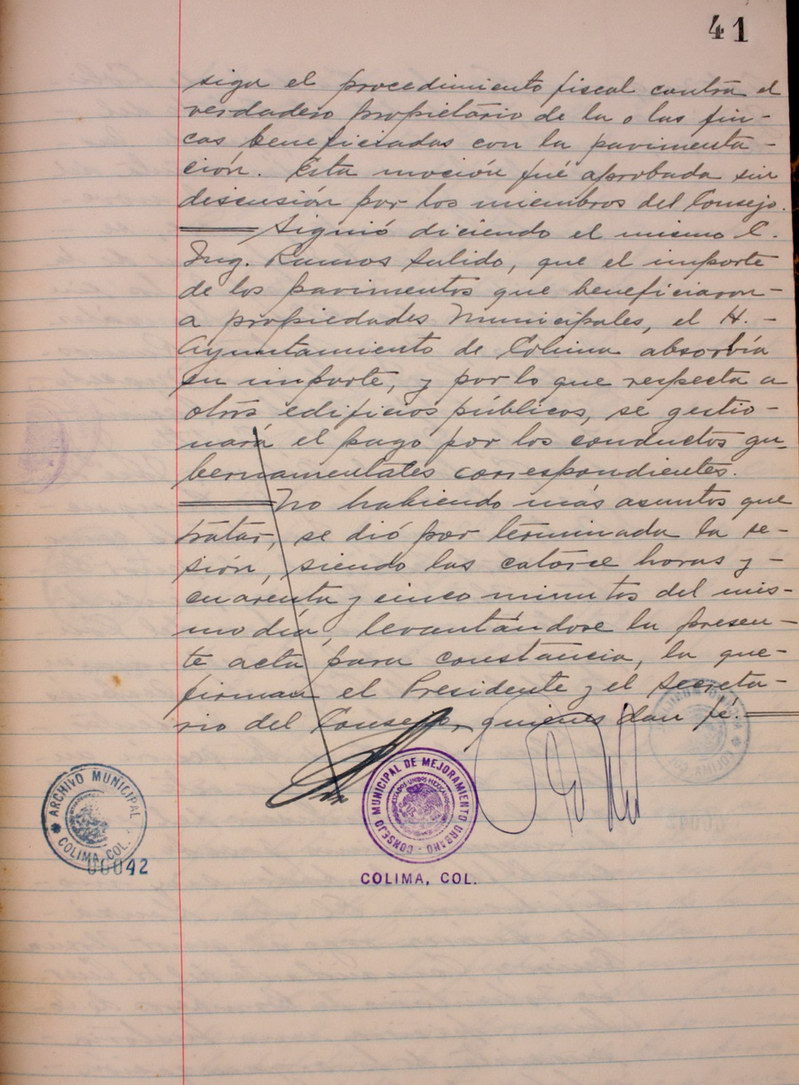 41
siga el procedimiento fiscal contra el
verdadero propietario de la o las fin-
cas beneficiadas con la pavimenta-
ción. Esta moción fué aprobada sin
discusión por los miembros del Consejo.
Siguió diciendo el mismo C.
Ing. Ramos Salido, que el importe
de los pavimentos que beneficiaron-
a propiedades Municipales, el H.-
Ayuntamiento de Colima absorbía
su importe, y por lo que respecta a
otros edificios públicos, se gestio-
nará el pago por los conductos gu-
bernamentales correspondientes.
No habiendo más asuntos que
tratar, se dió por terminada la se-
sión, siendo las catorce horas y-
cuarenta y cinco minutos del mis-
mo día, levantándose la presen-
te acta para constancia, la que-
firman el Presidente y el Secreta-
rio del Consejo, quienes dan fé.
CONSEJO MUNICIPAL DE MEJORAMIENTO URBANO
ESTADOS UNIDOS MEXICANOS
COLIMA, COL.
ARCHIVO MUNICIPAL
COLIMA, COL.
00042